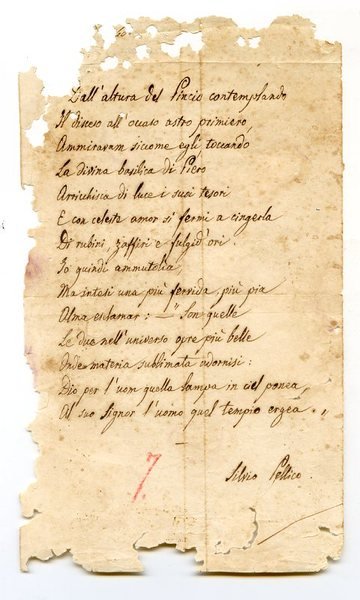 Dall'altura del Pincio contemplando
Il disceso all'occaso astro primiero,
Ammiravam siccome egli toccando
La divina basilica di Piero
Arricchisca di luce i suoi tesori
E con celeste amor si fermi a cingerla
Di rubini, zaffiri e fulgid'ori.
Io quindi ammutolia,
Ma intesi una più fervida, più pia
Alma esclamar: — " Son quelle
Le due nell'universo opre più belle
Onde materia sublimata adornisi:
Dio per l'uom quella lampa in ciel ponea,
Al suo Signor l'uomo quel tempio ergea. "
7.
Silvio Pellico.